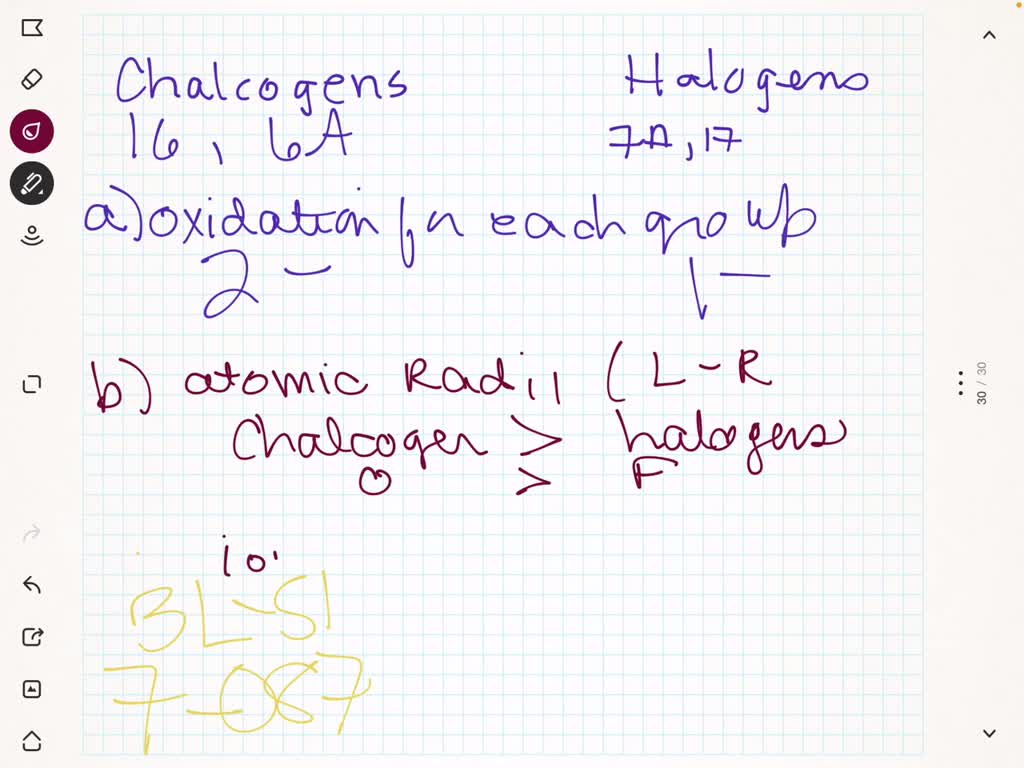 Chalcogens Halogens
16, 6A 7A, 17
a) oxidation for each group
2- 1-
b) atomic Radii (L-R
Chalcogen > halogens
O > F
io
BL-SI
7-087
30 / 30